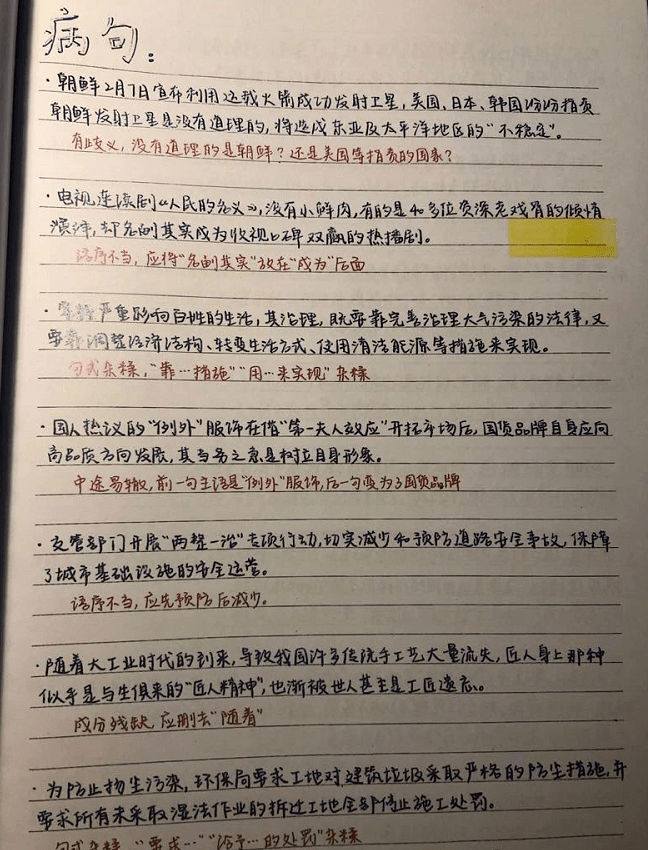 病句：
·朝鲜2月7日宣布利用运载火箭成功发射卫星，美国、日本、韩国纷纷指责
朝鲜发射卫星是没有道理的，将造成东亚及太平洋地区的“不稳定”。
有歧义，没有道理的是朝鲜？还是美国等指责的国家？
·电视连续剧《人民的名义》，没有小鲜肉，有的是40多位资深老戏骨的倾情
演绎，却名副其实成为收视口碑双赢的热播剧。
语序不当，应将“名副其实”放在“成为”后面
·雾霾严重影响百姓的生活，其治理，既要靠完善治理大气污染的法律，又
要靠调整经济结构、转变生活方式、使用清洁能源等措施来实现。
句式杂糅，“靠…措施”“用…来实现”杂糅
·国人热议的“例外”服饰在借“第一夫人效应”开拓市场后，国货品牌自身应向
高品质方向发展，其当务之急是树立自身形象。
中途易辙，前一句主语是“例外”服饰，后一句变为了国货品牌
·交管部门开展“两整一治”专项行动，切实减少和预防道路安全事故，保障
了城市基础设施的安全运营。
语序不当，应先预防后减少。
·随着大工业时代的到来，导致我国许多传统手工艺大量流失，匠人身上那种
似乎是与生俱来的“匠人精神”，也渐被世人甚至是工匠遗忘。
成分残缺 应删去“随着”
·为防止扬尘污染，环保局要求工地对建筑垃圾采取严格的防尘措施，并
要求所有未采取湿法作业的拆迁工地全部停止施工处罚。
句式杂糅，“要求…”“给予…的处罚”杂糅